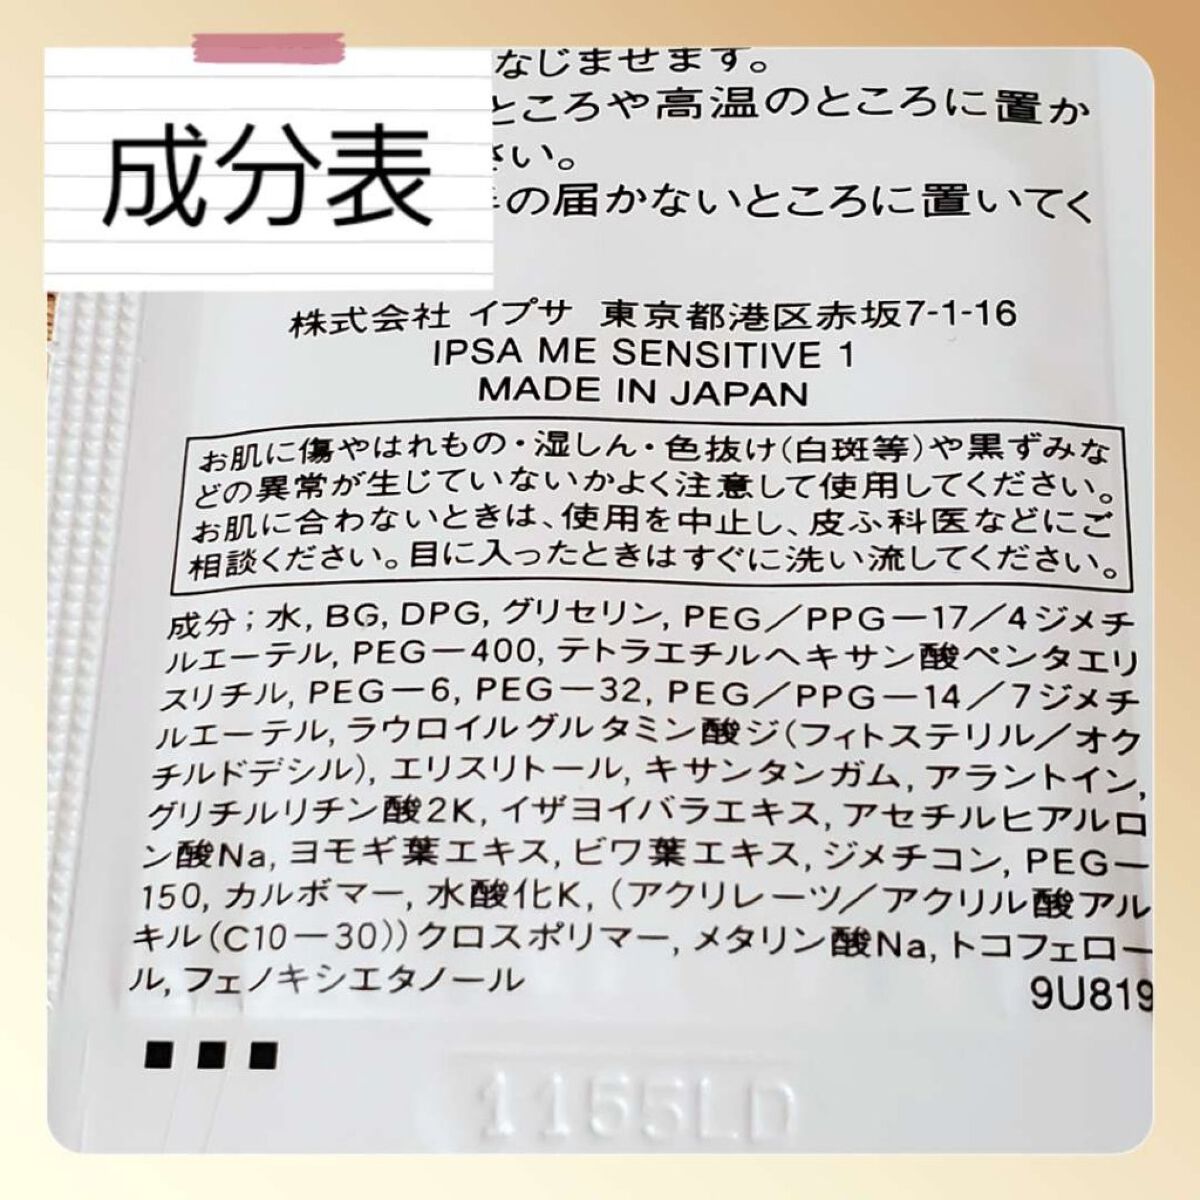 成分表
なじませます。
ところや高温のところに置か
さい。
の届かないところに置いてく
株式会社 イプサ 東京都港区赤坂7-1-16
IPSA ME SENSITIVE 1
MADE IN JAPAN
お肌に傷やはれもの・湿しん・色抜け(白斑等)や黒ずみな
どの異常が生じていないかよく注意して使用してください。
お肌に合わないときは、使用を中止し、皮ふ科医などにご
相談ください。目に入ったときはすぐに洗い流してください。
成分;水, BG, DPG, グリセリン, PEG/PPG-17/4ジメチ
ルエーテル, PEG-400, テトラエチルヘキサン酸ペンタエリ
スリチル, PEG-6, PEG-32, PEG/PPG-14/7ジメチ
ルエーテル, ラウロイルグルタミン酸ジ(フィトステリル/オク
チルドデシル), エリスリトール, キサンタンガム, アラントイン,
グリチルリチン酸2K, イザヨイバラエキス, アセチルヒアルロ
ン酸Na, ヨモギ葉エキス, ビワ葉エキス, ジメチコン, PEG-
150, カルボマー, 水酸化K, (アクリレーツ/アクリル酸アル
キル(C10-30))クロスポリマー, メタリン酸Na, トコフェロー
ル, フェノキシエタノール
9U819
1155LD